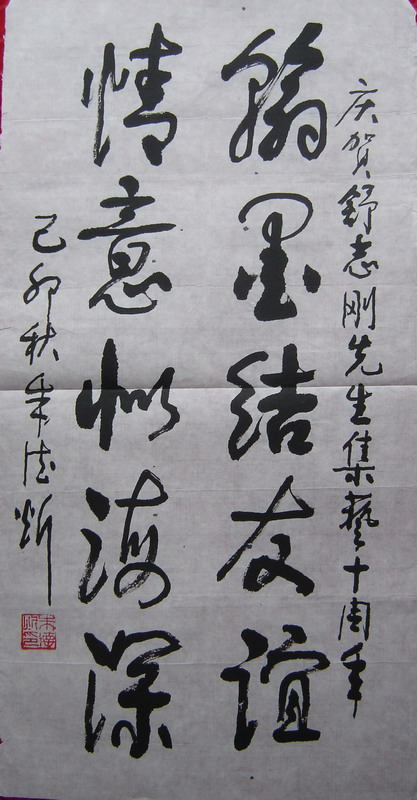 庆贺舒志刚先生集藝十周年
翰墨结友谊
情意似海深
己卯秋朱德炘